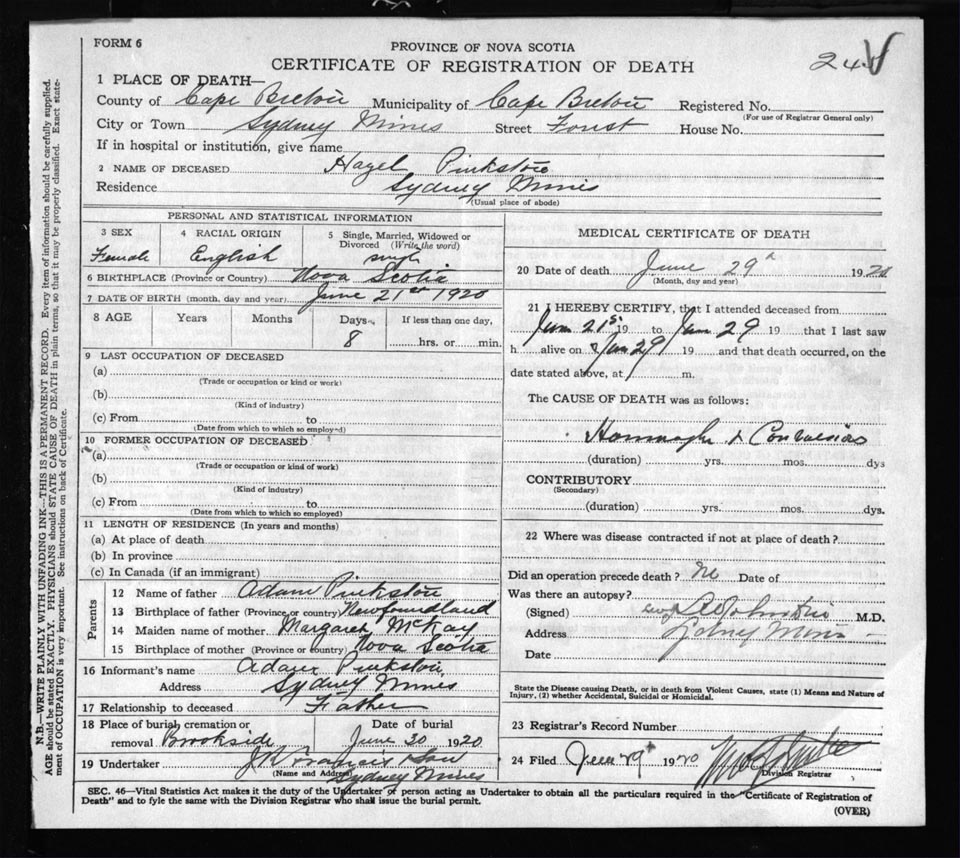 FORM 6
PROVINCE OF NOVA SCOTIA
CERTIFICATE OF REGISTRATION OF DEATH
24
1 PLACE OF DEATH—
County of Cape Breton Municipality of Cape Breton Registered No.
(For use of Registrar General only)
City or Town Sydney Mines Street Forest House No.
If in hospital or institution, give name
2 NAME OF DECEASED Hazel Pinkston
Residence Sydney Mines
(Usual place of abode)
PERSONAL AND STATISTICAL INFORMATION
3 SEX 4 RACIAL ORIGIN 5 Single, Married, Widowed or Divorced (Write the word)
Female English single
6 BIRTHPLACE (Province or Country) Nova Scotia
7 DATE OF BIRTH (month, day and year) June 21st 1920
8 AGE Years Months Days If less than one day,
8 hrs. or min.
9 LAST OCCUPATION OF DECEASED
(a)
(Trade or occupation or kind or work)
(b)
(Kind of industry)
(c) From to
(Date from which to which so employed)
10 FORMER OCCUPATION OF DECEASED
(a)
(Trade or occupation or kind of work)
(b)
(Kind of industry)
(c) From to
(Date from which to which so employed)
11 LENGTH OF RESIDENCE (In years and months)
(a) At place of death
(b) In province
(c) In Canada (if an immigrant)
Parents
12 Name of father Adam Pinkston
13 Birthplace of father (Province or country) Newfoundland
14 Maiden name of mother Margaret McKay
15 Birthplace of mother (Province or country) Nova Scotia
16 Informant's name Adam Pinkston
Address Sydney Mines
17 Relationship to deceased Father
18 Place of burial, cremation or Date of burial
removal Brookside June 30 1920
19 Undertaker J R Francis & Son
(Name and Address) Sydney Mines
MEDICAL CERTIFICATE OF DEATH
20 Date of death June 29th 1920
(Month, day and year)
21 I HEREBY CERTIFY, that I attended deceased from
June 21st 19 to June 29 19 that I last saw
h alive on June 29 19 and that death occurred, on the
date stated above, at m.
The CAUSE OF DEATH was as follows:
Hemorraghe & Convulsions
(duration) yrs. mos. dys
CONTRIBUTORY
(Secondary)
(duration) yrs. mos. dys.
22 Where was disease contracted if not at place of death?
Did an operation precede death? No Date of
Was there an autopsy?
(Signed) M.D.
Address Sydney Mines
Date
State the Disease causing Death, or in death from Violent Causes, state (1) Means and Nature of
Injury, (2) whether Accidental, Suicidal or Homicidal.
23 Registrar's Record Number
24 Filed June 29th 1920
Division Registrar
SEC. 46—Vital Statistics Act makes it the duty of the Undertaker or person acting as Undertaker to obtain all the particulars required in the "Certificate of Registration of
Death" and to fyle the same with the Division Registrar who shall issue the burial permit.
(OVER)
N.B.—WRITE PLAINLY WITH UNFADING INK—THIS IS A PERMANENT RECORD. Every item of information should be carefully supplied.
AGE should be stated EXACTLY. PHYSICIANS should STATE CAUSE OF DEATH in plain terms, so that it may be properly classified. Exact state-
ment of OCCUPATION is very important. See instructions on back of Certificate.